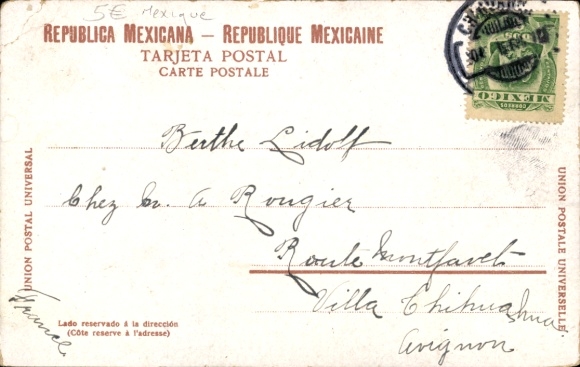 5€ Mexique
REPUBLICA MEXICANA — REPUBLIQUE MEXICAINE
TARJETA POSTAL
CARTE POSTALE
CORREOS
MEXICO
UNION POSTAL UNIVERSAL
Berthe Lidolf
Chez A Rougier
Route Montfavet
Villa Chihuahua
Avignon
France
Lado reservado á la dirección
(Côte reserve à l'adresse)
UNION POSTALE UNIVERSELLE